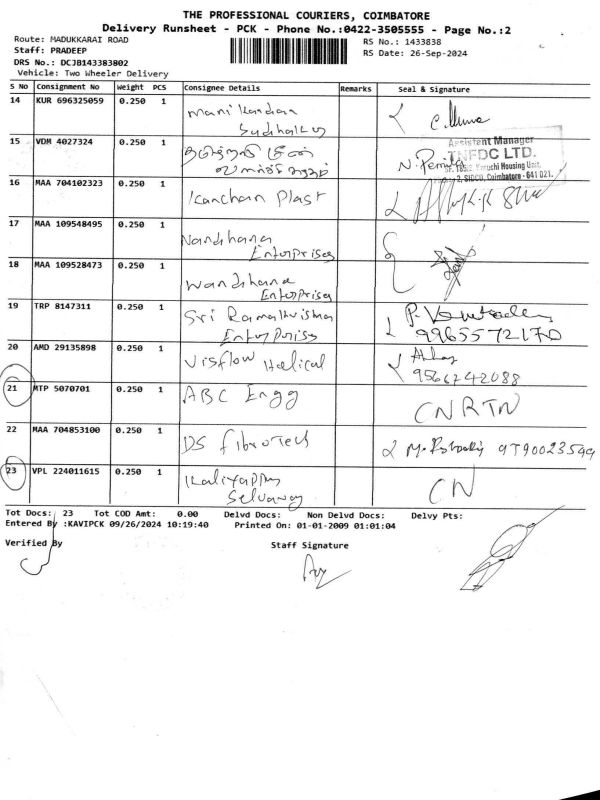 THE PROFESSIONAL COURIERS, COIMBATORE
Delivery Runsheet - PCK - Phone No.:0422-3505555 - Page No.:2
Route: MADUKKARAI ROAD
RS No.: 1433838
Staff: PRADEEP
RS Date: 26-Sep-2024
DRS No.: DCJB143383802
Vehicle: Two Wheeler Delivery
S No Consignment No Weight PCS Consignee Details Remarks Seal & Signature
14 KUR 696325059 0.250 1 Manikandan
15 VDM 4027324 0.250 1
Assistant Manager
TNFDC LTD.
Housing Unit,
2, SIDCO, Coimbatore - 641 021.
16 MAA 704102323 0.250 1 Kanchan Plast
17 MAA 109548495 0.250 1 Nandhana
Enterprises
18 MAA 109528473 0.250 1 Wandhana
Enterprises
19 TRP 8147311 0.250 1 Sri Ramakrishna
Enterprises
9965572170
20 AMD 29135898 0.250 1 Visflow Helical
9566242088
21 MTP 5070701 0.250 1 ABC Engg CNRTN
22 MAA 704853100 0.250 1 DS fibroTech
23 VPL 224011615 0.250 1 Kaliyappa CN
Selvaraj
Tot Docs: 23 Tot COD Amt: 0.00 Delvd Docs: Non Delvd Docs: Delvy Pts:
Entered By :KAVIPCK 09/26/2024 10:19:40 Printed On: 01-01-2009 01:01:04
Verified By Staff Signature